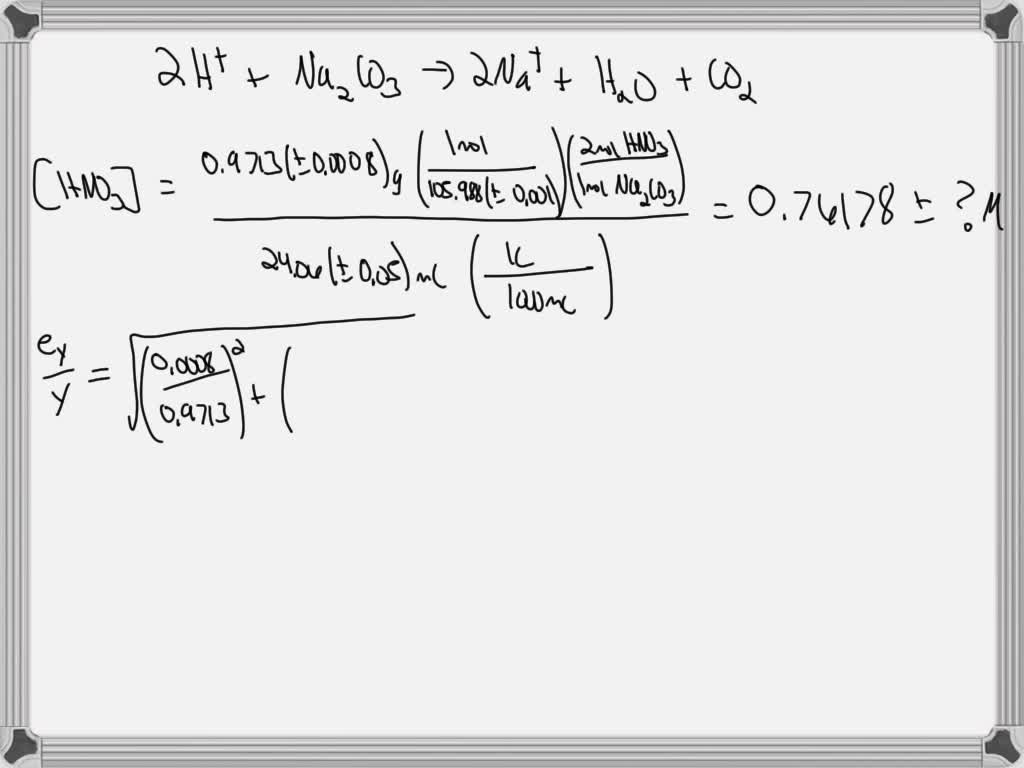 2H⁺ + Na₂CO₃ → 2Na⁺ + H₂O + CO₂
[HNO₃] = 0.9713(±0.0008)g (1mol / 105.988(±0.001)) (2mol HNO₃ / 1mol Na₂CO₃) = 0.76178 ± ? M
24.06(±0.05)mL (1L / 1000mL)
eᵧ / y = √(0.0008 / 0.9713)² + (